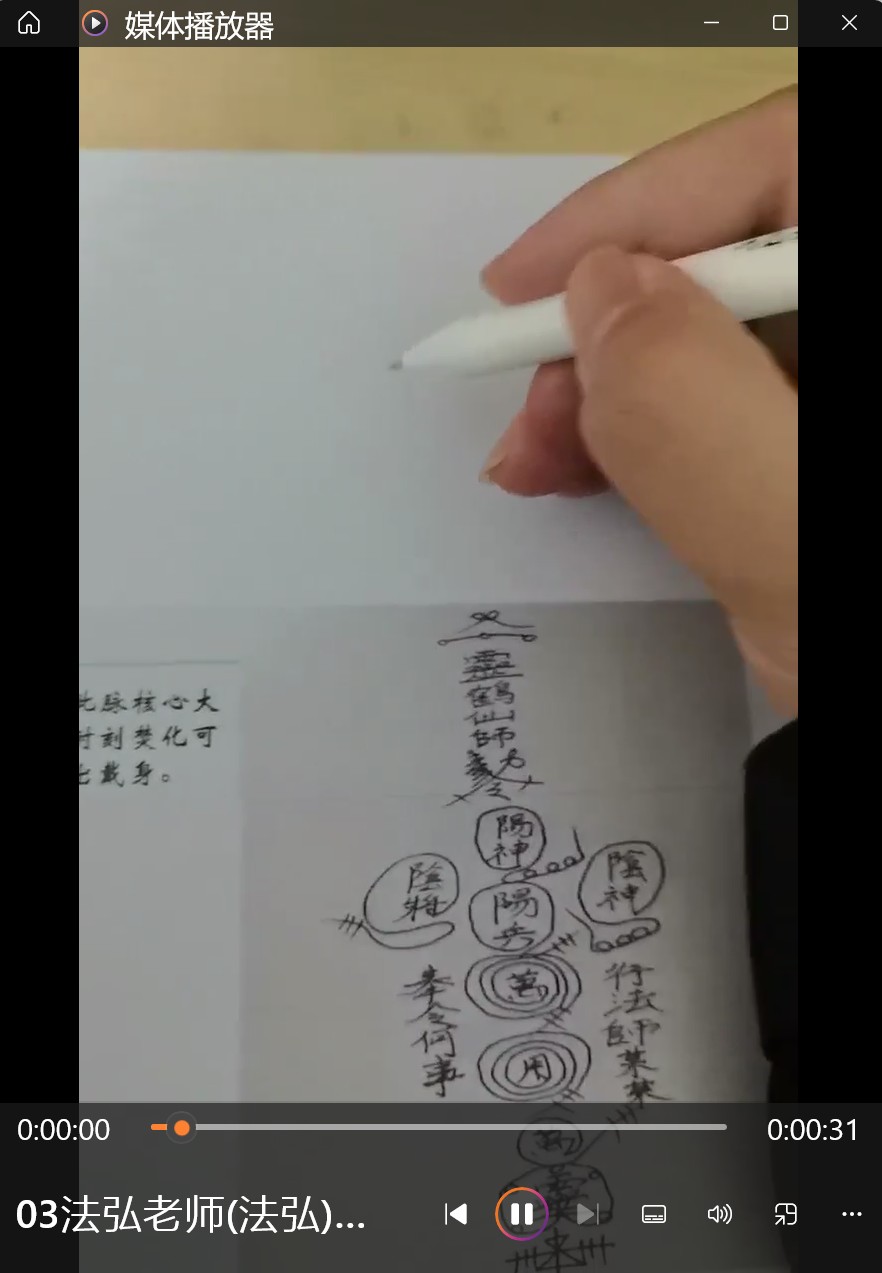 媒体播放器
脉核心大
刻焚化可
戴身。
靈
鶴
仙
師
陽神
陰將
陽兵
陰神
萬
用
奉令何事
行法師某某
0:00:00
0:00:31
03法弘老师(法弘)...